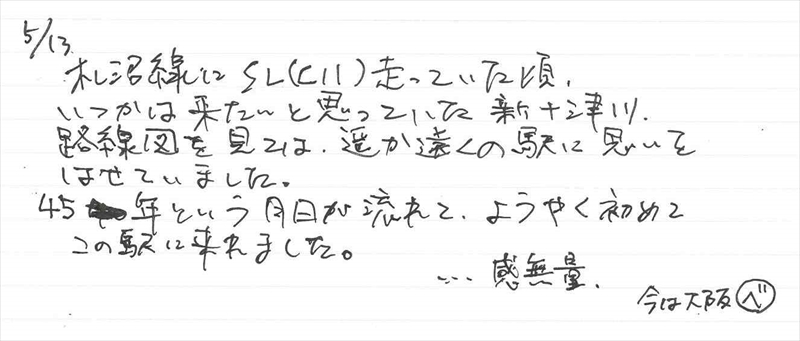 5/13
札沼線に SL(C11)走っていた頃、
いつかは来たいと思っていた 新十津川.
路線図を見ては、遥か遠くの駅に思いを
はせていました。
45 年という月日が流れて、ようやく初めて
この駅に来れました。
… 感無量.
今は大阪 べ